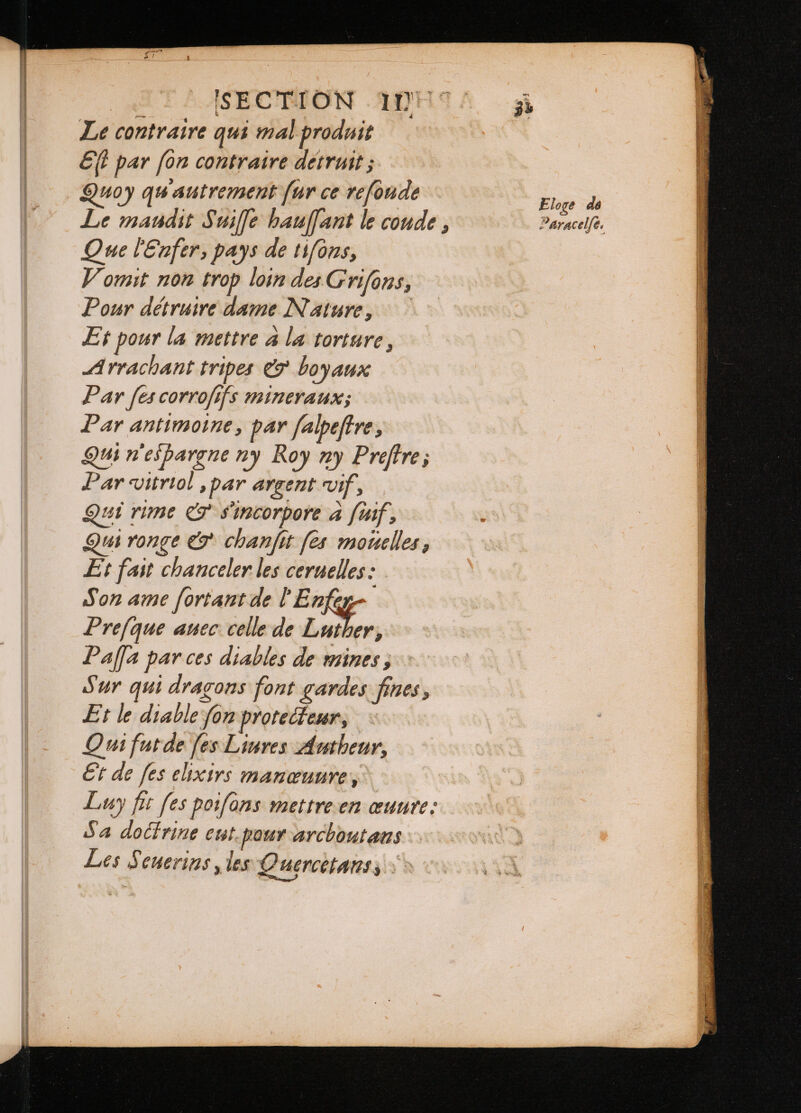 SECTION II
Le contraire qui mal produit
Eſt par ſon contraire détruit;
Quoy qu'autrement ſur ce reſonde
Le maudit Suiſſe hauſſant le coude,
Que l'Enfer, pays de tiſons,
Vomit non trop loin des Griſons,
Pour détruire dame Nature,
Et pour la mettre à la torture,
Arrachant tripes & boyaux
Par ſes corroſifs mineraux;
Par antimoine, par ſalpeſtre,
Qui n'eſpargne ny Roy ny Preſtre;
Par vitriol, par argent vif,
Qui rime & s'incorpore à ſuif,
Qui ronge & chanſit ſes moüelles,
Et fait chanceler les ceruelles:
Son ame ſortant de l'Enfer
Preſque auec celle de Luther,
Paſſa par ces diables de mines,
Sur qui dragons font gardes fines,
Et le diable ſon protecteur,
Qui fut de ſes Liures Autheur,
Et de ſes elixirs manœuure,
Luy fit ſes poiſons mettre en œuure:
Sa doctrine eut pour arcboutans
Les Seuerins, les Quercetans,
Eloge de
Paracelſe.